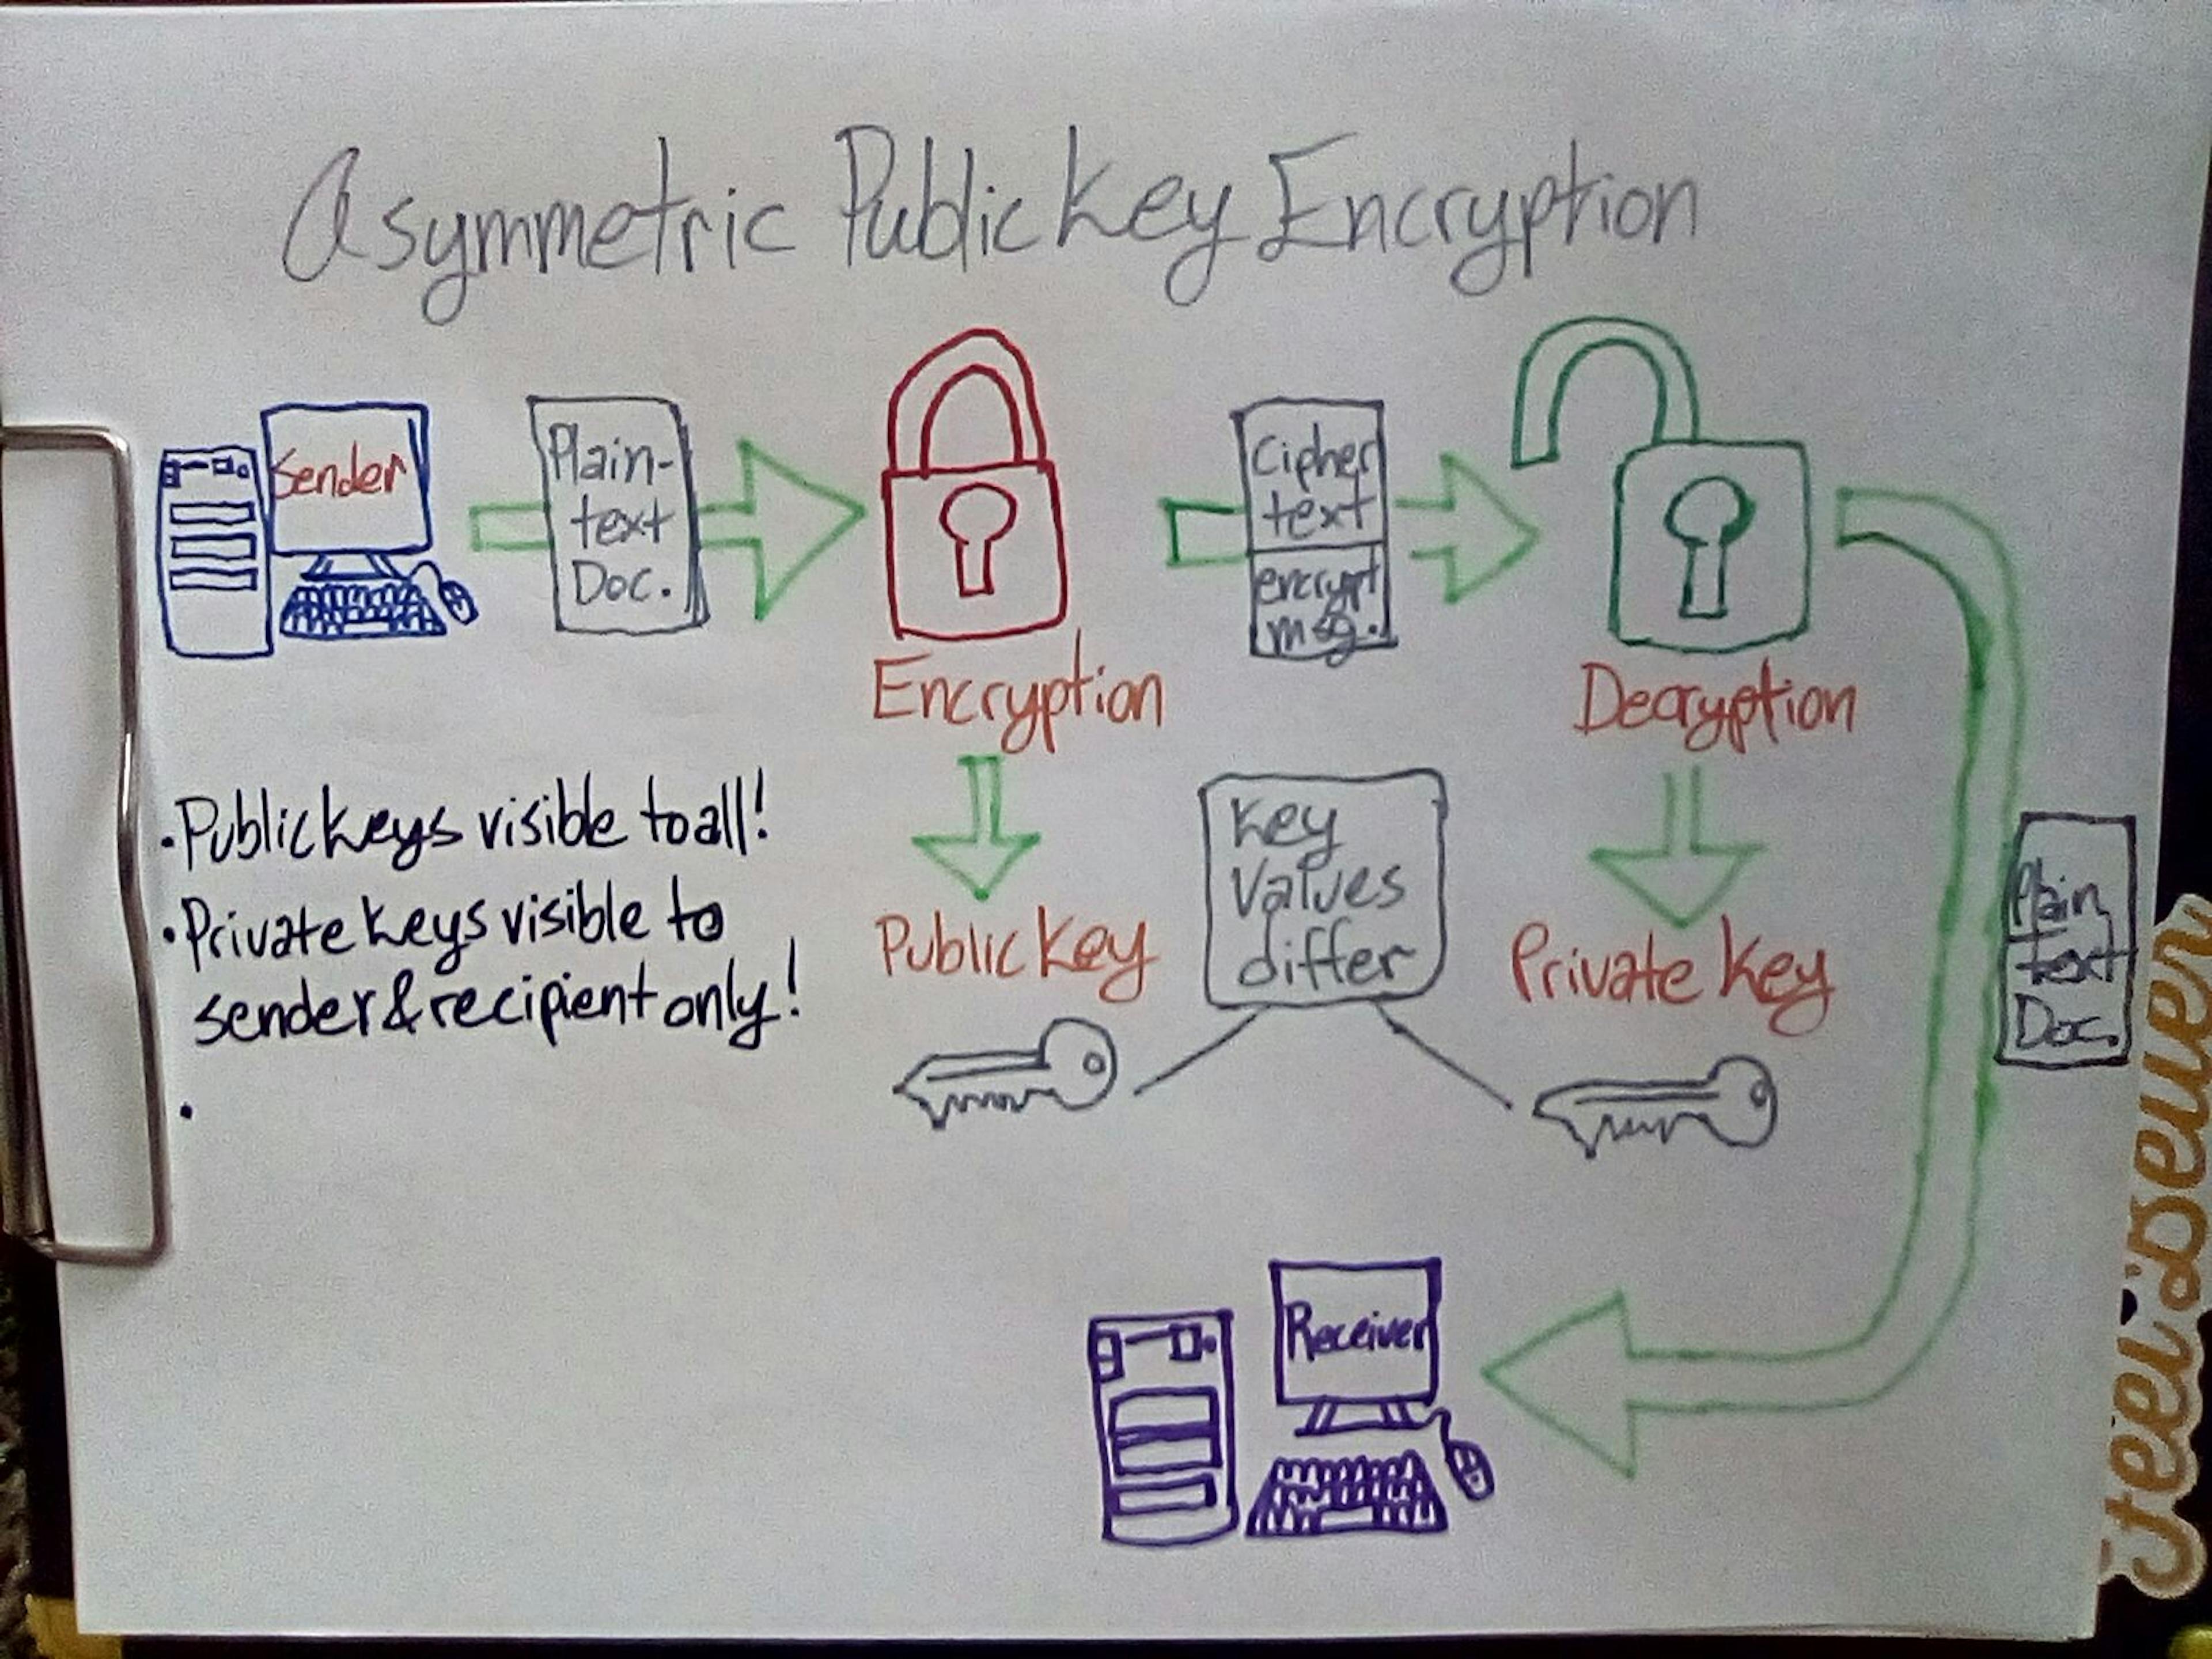 Asymmetric Public Key Encryption
Sender
Plain-
text
Doc.
Cipher
text
encrypt
msg.
Encryption
Decryption
• Public keys visible to all!
• Private keys visible to
sender & recipient only!
•
Public Key
Key
Values
differ
Private Key
Plain
text
Doc.
Receiver